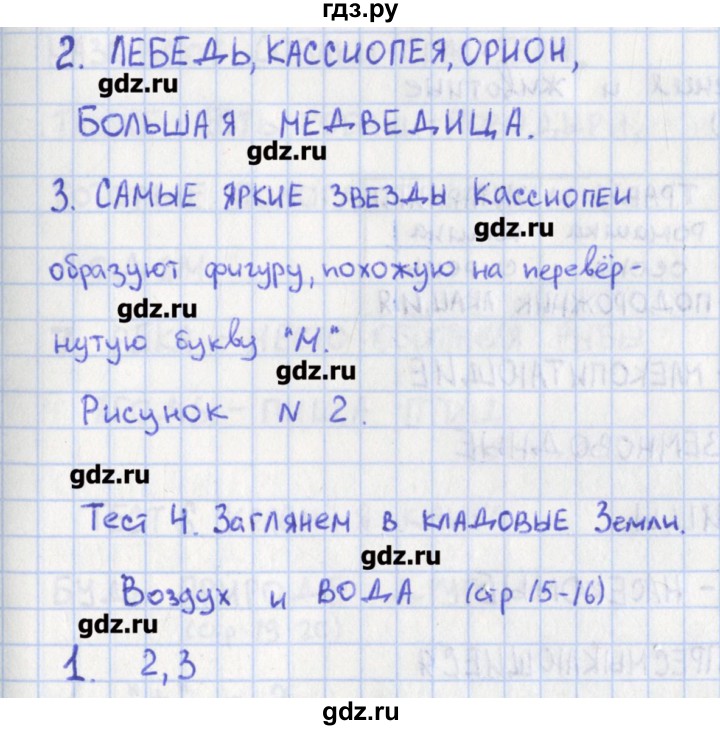 гдз.ру
2. ЛЕБЕДЬ, КАССИОПЕЯ, ОРИОН,
gdz.ru
БОЛЬШАЯ МЕДВЕДИЦА.
gdz.ru
3. САМЫЕ ЯРКИЕ ЗВЕЗДЫ Кассиопеи
gdz.ru
образуют фигуру, похожую на перевёр-
gdz.ru
нутую букву "М."
gdz.ru
Рисунок N 2.
gdz.ru
Тест 4. Заглянем в кладовые Земли.
gdz.ru
Воздух и ВОДА (стр 15-16)
gdz.ru
1. 2, 3
gdz.ru